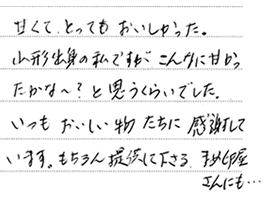 甘くて、とってもおいしかった。
山形出身の私ですが、こんなに甘かっ
たかな〜？と思うくらいでした。
いつもおいしい物たちに感謝して
います。もちろん提供して下さる、まめ印屋
さんにも…